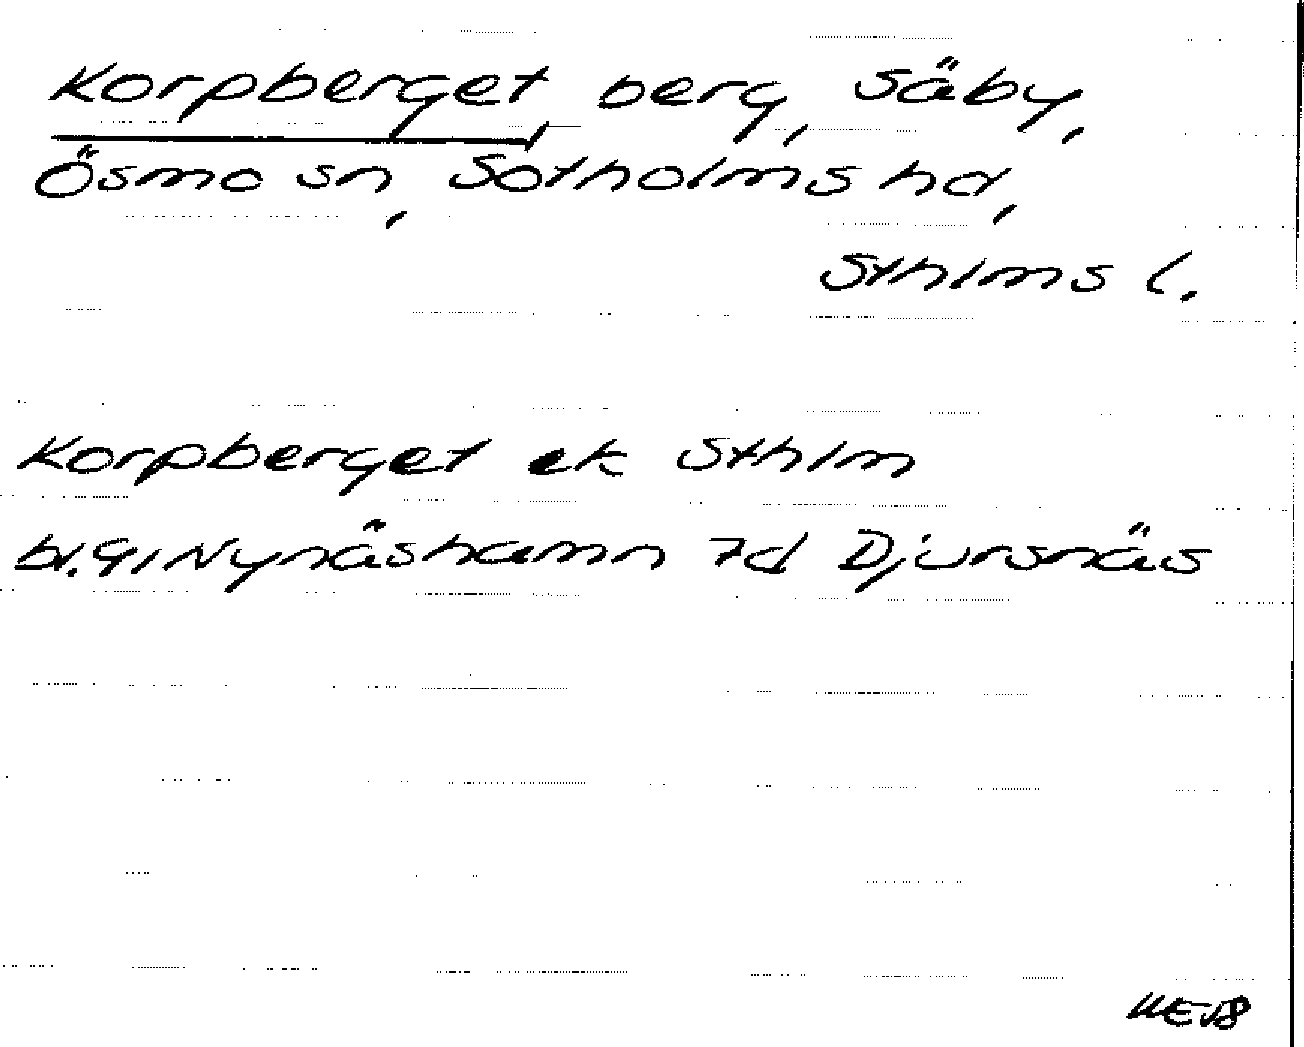 Korpberget, berg, Säby,
Ösmo sn, Sotholms hd,
Sthlms l.
Korpberget ek Sthlm
bl. 9I Nynäshamn 7d Djursnäs